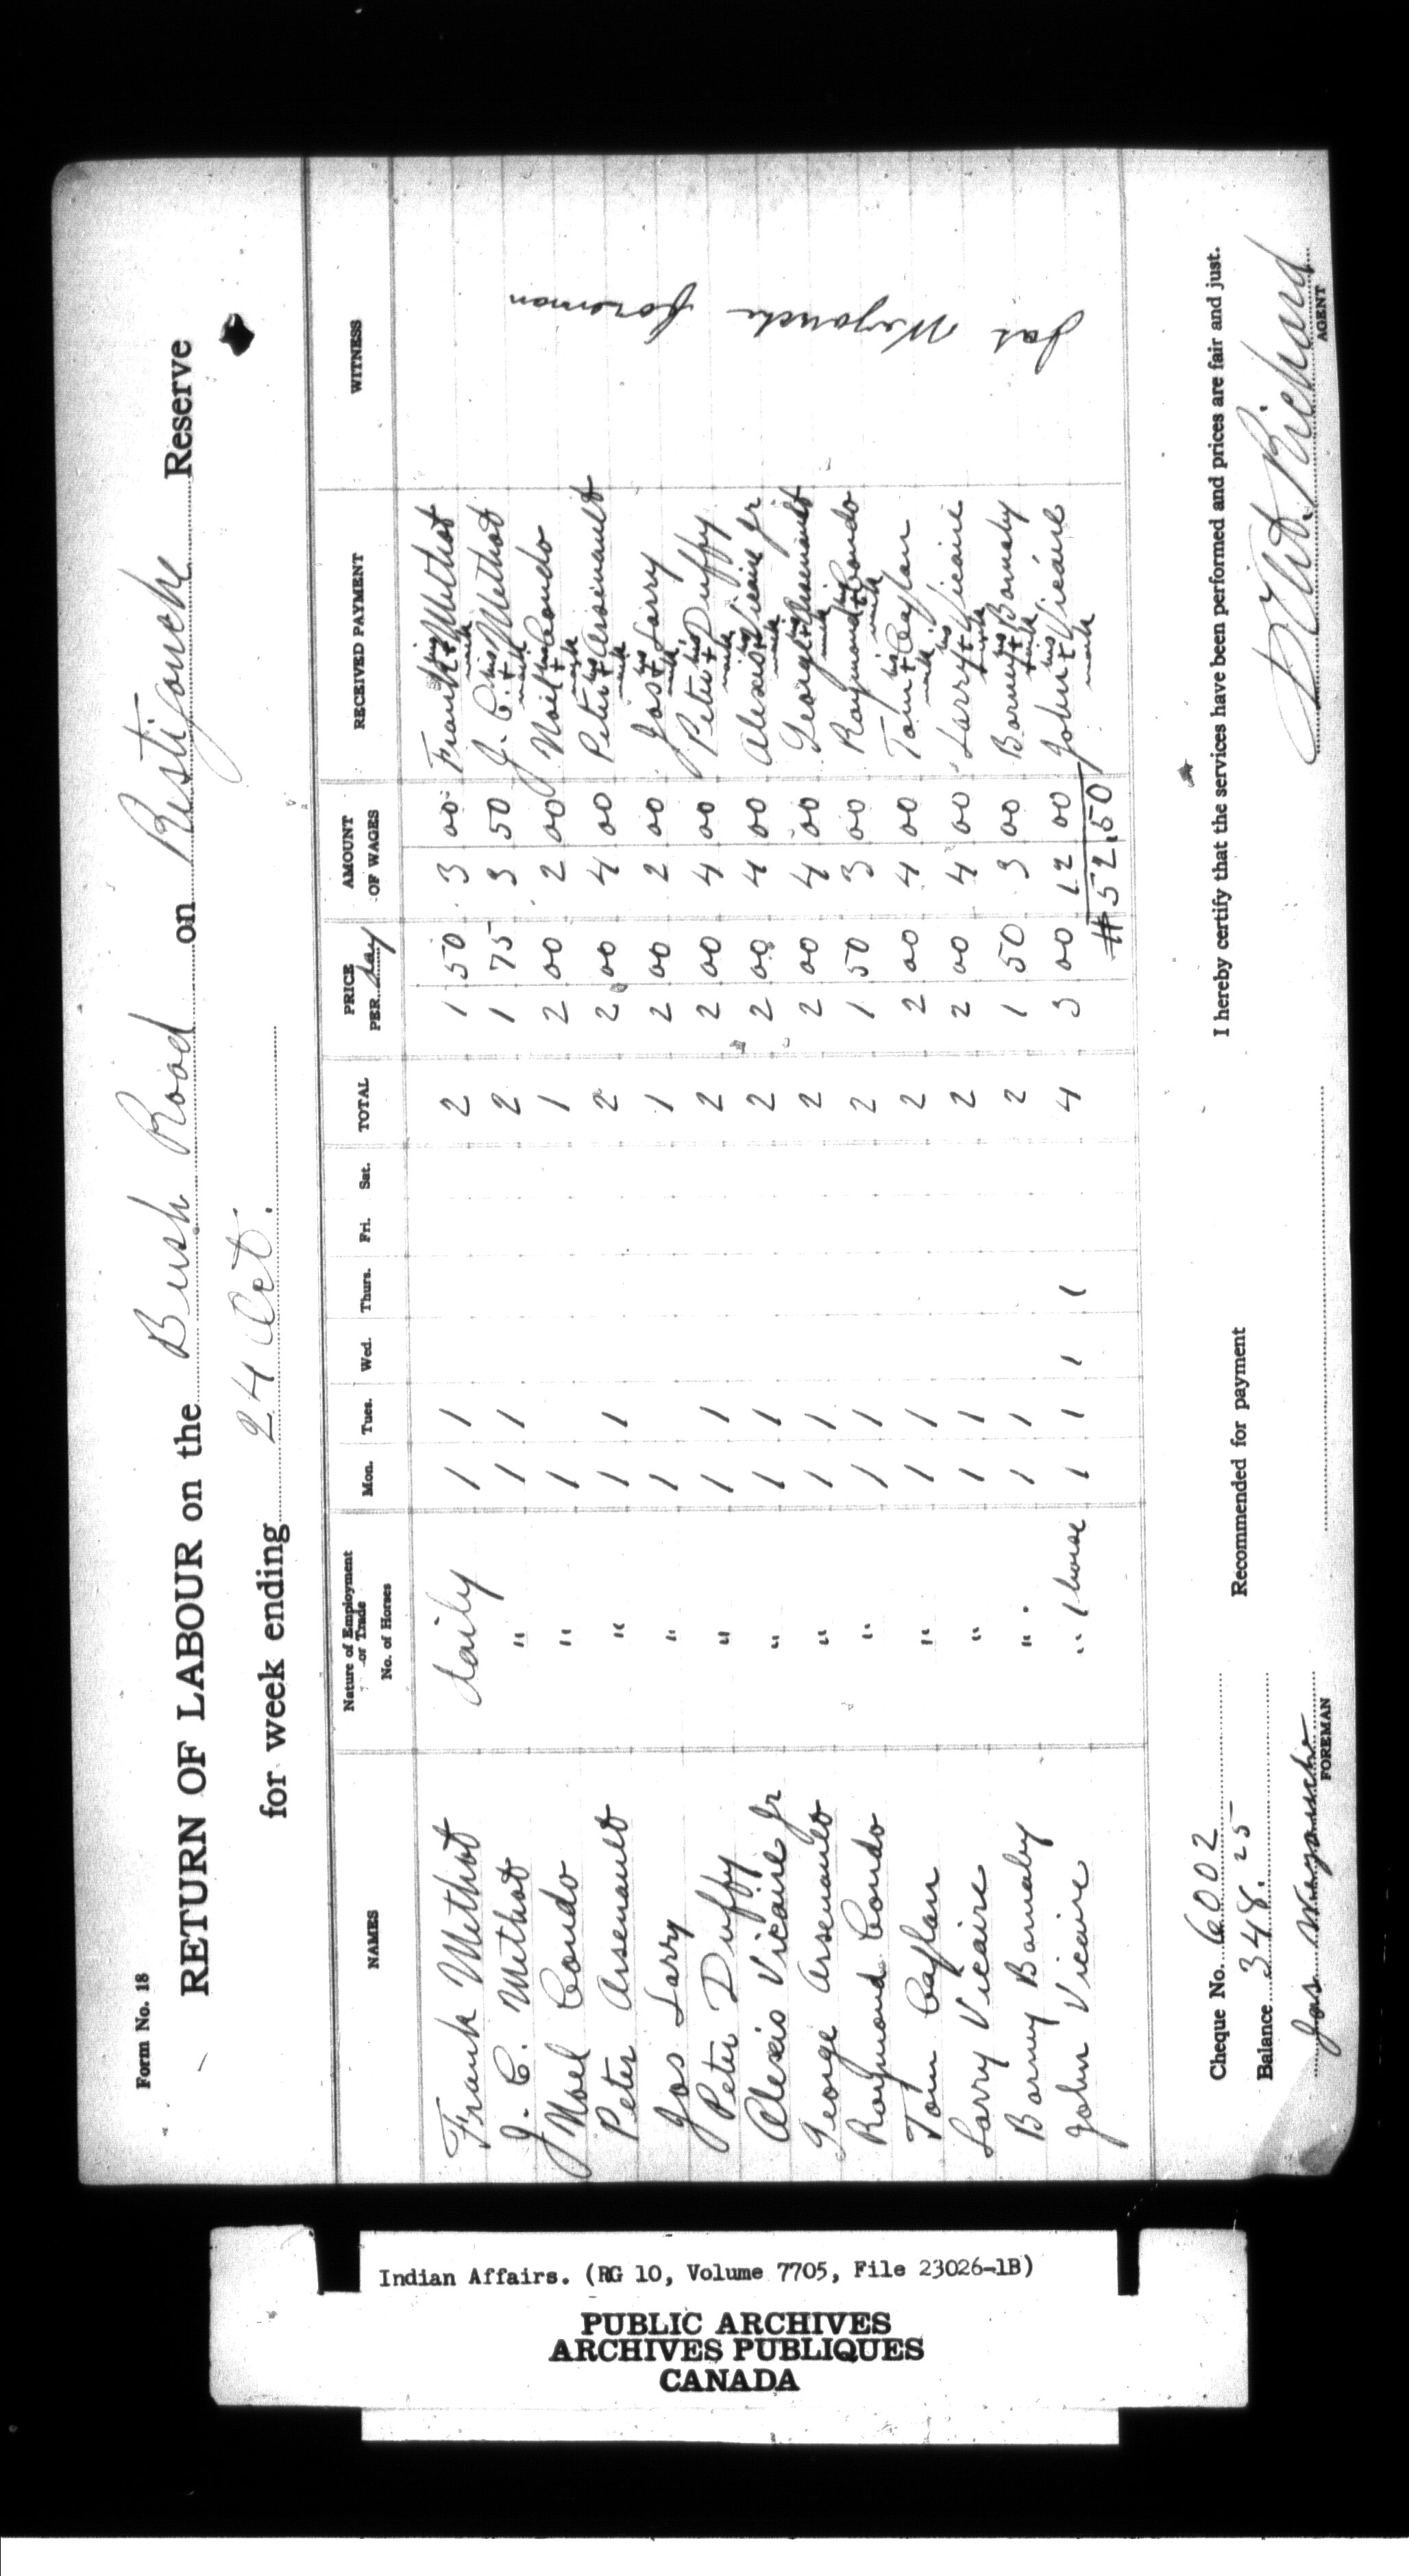 Form No. 18
RETURN OF LABOUR on the Bush Road on Ristigouche Reserve
for week ending 24 Oct.
NAMES Nature of Employment or Trade No. of Horses Mon. Tues. Wed. Thurs. Fri. Sat. TOTAL PRICE PER day AMOUNT OF WAGES RECEIVED PAYMENT WITNESS
Frank Methot daily 1 1 2 1 50 3 00 Frank his + mark Methot
J. C. Methot " 1 1 2 1 75 3 50 J. C. his + mark Methot
Noel Condo " 1 1 2 00 2 00 Noel his + mark Condo
Peter Arsenault " 1 1 2 2 00 4 00 Peter his + mark Arsenault
Jos Larry " 1 1 2 00 2 00 Jos his + mark Larry
Peter Duffy " 1 1 2 2 00 4 00 Peter his + mark Duffy
Alexis Vicaire Jr " 1 1 2 2 00 4 00 Alexis his + mark Vicaire Jr
George Arsenault " 1 1 2 2 00 4 00 George his + mark Arsenault
Raymond Condo " 1 1 2 1 50 3 00 Raymond his + mark Condo
Tom Caplan " 1 1 2 2 00 4 00 Tom his + mark Caplan
Larry Vicaire " 1 1 2 2 00 4 00 Larry his + mark Vicaire
Barney Barnaby " 1 1 2 1 50 3 00 Barney his + mark Barnaby
John Vicaire " 1 horse 1 1 1 1 4 3 00 12 00 John his + mark Vicaire
$52.50
Jas Foreman
Cheque No. 6002
Balance 348.25
Recommended for payment
I hereby certify that the services have been performed and prices are fair and just.
Jas
FOREMAN
Richard
AGENT
Indian Affairs. (RG 10, Volume 7705, File 23026-1B)
PUBLIC ARCHIVES
ARCHIVES PUBLIQUES
CANADA